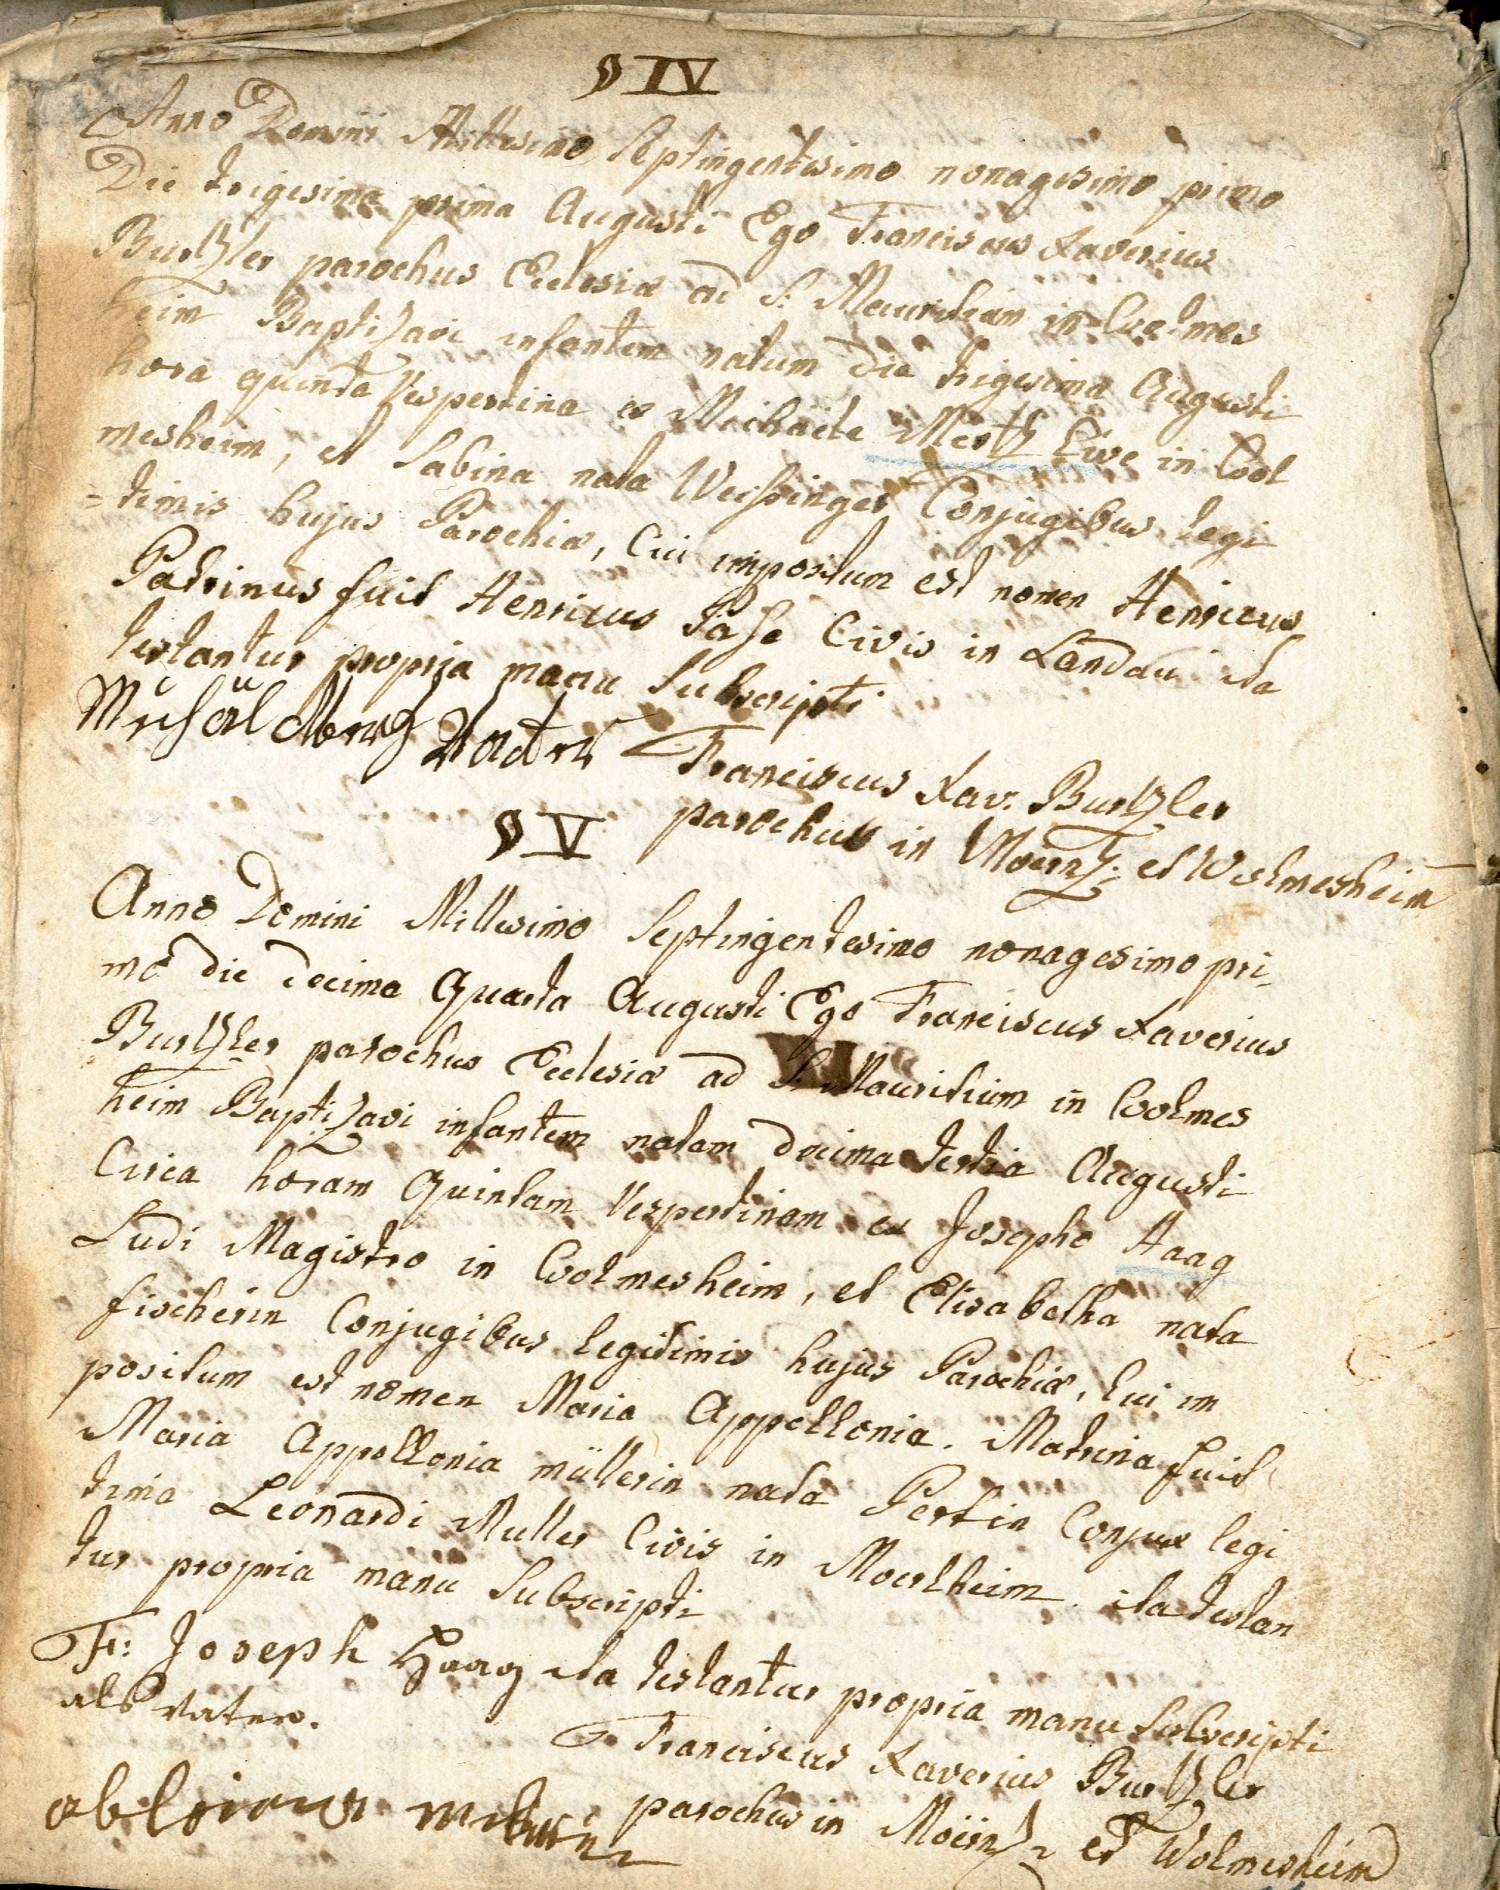 § IV
Anno Domini Millesimo Septingentesimo nonagesimo primo
Die trigesima prima Augusti Ego Franciscus Xaverius
Burtzler parochus Ecclesiæ ad S: Mauritium in Wolmes
heim Baptizavi infantem natum die trigesima Augusti
hora quinta Vespertina ex Michaële Mertz Cive in Wol
mesheim, et Sabina nata Conjugibus legi
=timis hujus Parochiæ, Cui impositum est nomen Henricus
Patrinus fuit Henricus Civis in Landau ita
testantur propria manu Subscripti
Michäel Mertz Vatter
Franciscus Xav. Burtzler
parochus in et Wolmesheim
§ V
Anno Domini Millesimo Septingentesimo nonagesimo pri-
mo die decima Quarta Augusti Ego Franciscus Xaverius
Burtzler parochus Ecclesiæ ad S: Mauritium in Wolmes
heim Baptizavi infantem natam decima tertia Augusti
Circa horam Quintam Vespertinam ex Josepho Haag
Ludi Magistro in Wolmesheim, et Elisabetha nata
fischerin Conjugibus legitimis hujus Parochiæ, Cui im
positum est nomen Maria Appollonia. Matrina fuit
Maria Appollonia müllerin nata Conjux legi
tima Leonardi Muller Civis in Moerlheim. ita testan
tur propria manu Subscripti
Fr: Joseph Haag ita testantur propria manu Subscripti
als Vater.
Franciscus Xaverius Burtzler
parochus in et Wolmesheim